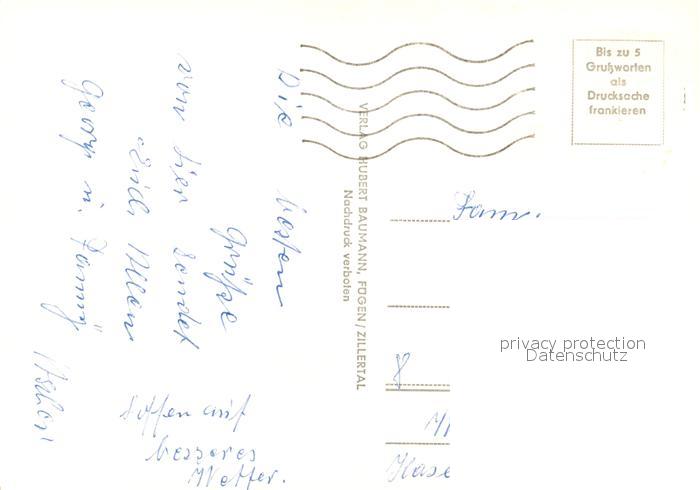 Bis zu 5
Grußworten
als
Drucksache
frankieren
VERLAG HUBERT BAUMANN, FÜGEN/ZILLERTAL
Nachdruck verboten
Die besten
Grüße
von hier sendet
Euch Allen
Georg u. Fanny
Hoffen auf
besseres
Wetter.
Fam.
8
privacy protection
Datenschutz